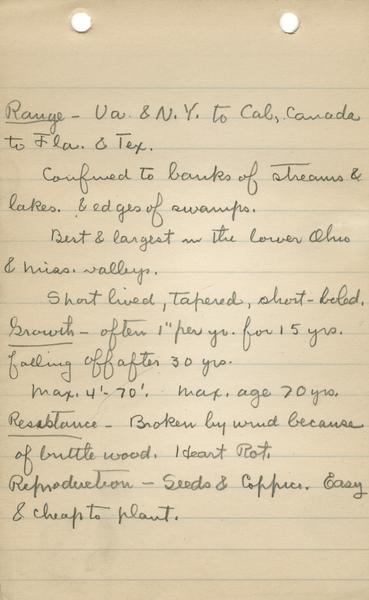 Range - Va. & N.Y. to Cal, Canada
to Fla. & Tex.
Confined to banks of streams &
lakes. & edges of swamps.
Best & largest in the lower Ohio
& Miss. valleys.
Short lived, tapered, short-boled.
Growth - often 1" per yr. for 15 yrs.
falling off after 30 yrs.
Max. 4'-70'. Max. age 70 yrs.
Resistance - Broken by wind because
of brittle wood. Heart Rot.
Reproduction - Seeds & Coppice. Easy
& cheap to plant.